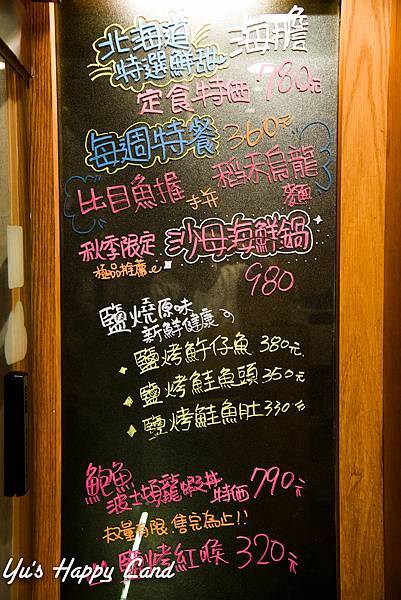 北海道
特選鮮甜 海膽
定食特価 780元
每週特餐 360元
比目魚握 拼 稻禾烏龍麵
秋季限定 沙母海鮮鍋
極品推薦
980
鹽燒原味
新鮮健康
鹽烤魽仔魚 380元
鹽烤鮭魚頭 350元
鹽烤鮭魚肚 330元
鮑魚
波士頓龍蝦丼 特価 790元
數量有限.售完為止!!
鹽烤紅喉 320元
Yu's Happy Land